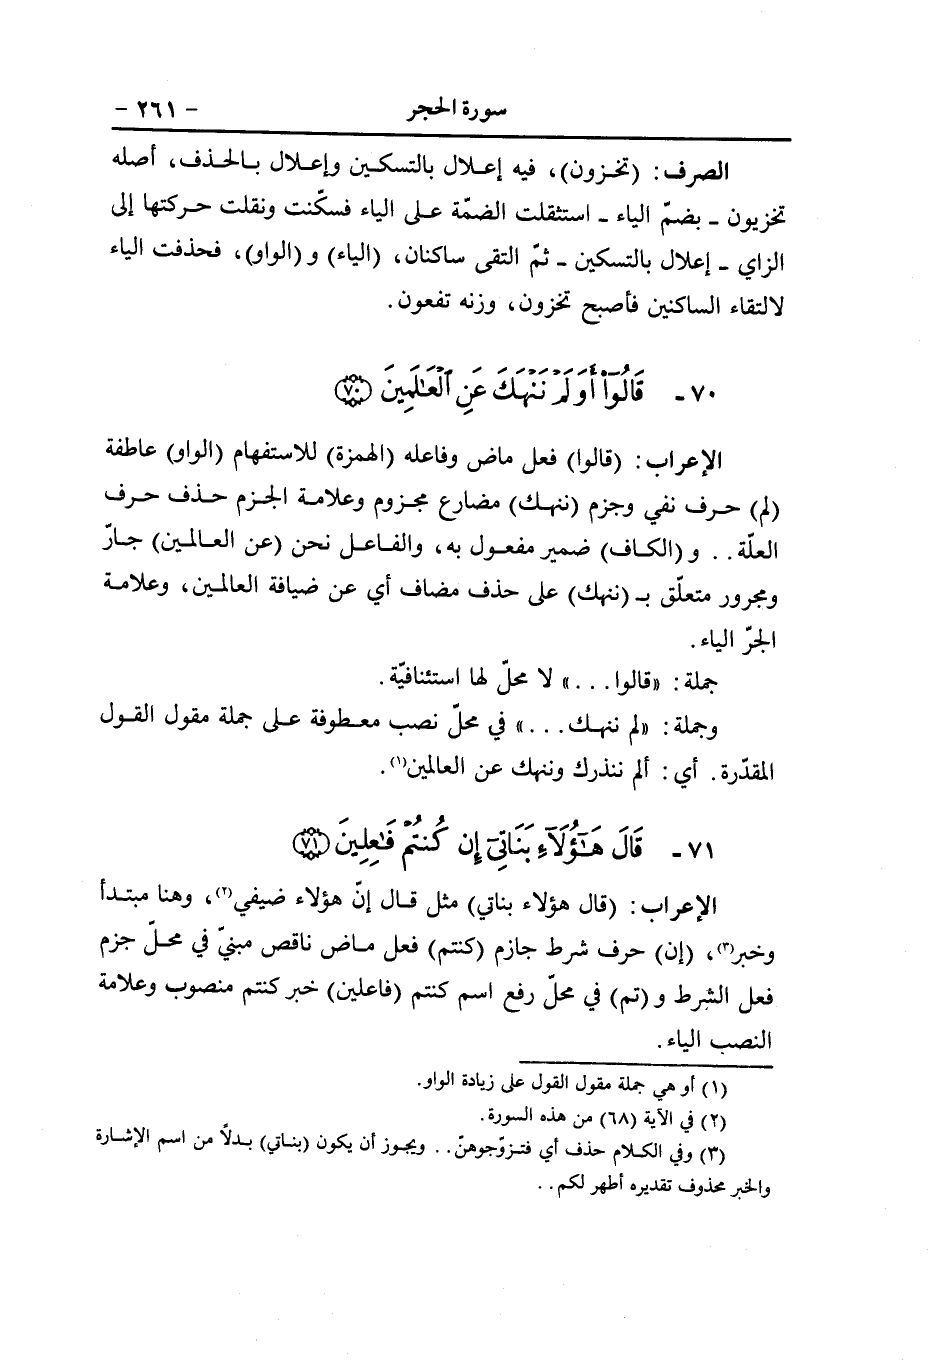 سورة الحجر - ٢٦١ -
الصرف : (تخزون)، فيه إعلال بالتسكين وإعلال بالحذف، أصله
تخزيون - بضمّ الياء - استثقلت الضمّة على الياء فسكّنت ونقلت حركتها إلى
الزاي - إعلال بالتسكين - ثمّ التقى ساكنان، (الياء) و(الواو)، فحذفت الياء
لالتقاء الساكنين فأصبح تخزون، وزنه تفعون.
٧٠ - قَالُوٓا۟ أَوَلَمْ نَنْهَكَ عَنِ ٱلْعَٰلَمِينَ ﴿٧٠﴾
الإعراب : (قالوا) فعل ماض وفاعله (الهمزة) للاستفهام (الواو) عاطفة
(لم) حرف نفي وجزم (ننهك) مضارع مجزوم وعلامة الجزم حذف حرف
العلّة . . و(الكاف) ضمير مفعول به، والفاعل نحن (عن العالمين) جارّ
ومجرور متعلّق بـ (ننهك) على حذف مضاف أي عن ضيافة العالمين، وعلامة
الجرّ الياء.
جملة : «قالوا . . .» لا محلّ لها استئنافيّة.
وجملة : «لم ننهك . . .» في محلّ نصب معطوفة على جملة مقول القول
المقدّرة. أي : ألم ننذرك وننهك عن العالمين(١).
٧١ - قَالَ هَٰٓؤُلَآءِ بَنَاتِىٓ إِن كُنتُمْ فَٰعِلِينَ ﴿٧١﴾
الإعراب : (قال هؤلاء بناتي) مثل قال إنّ هؤلاء ضيفي(٢)، وهنا مبتدأ
وخبر(٣)، (إن) حرف شرط جازم (كنتم) فعل ماض ناقص مبنيّ في محلّ جزم
فعل الشرط و(تم) في محلّ رفع اسم كنتم (فاعلين) خبر كنتم منصوب وعلامة
النصب الياء.
(١) أو هي جملة مقول القول على زيادة الواو.
(٢) في الآية (٦٨) من هذه السورة.
(٣) وفي الكلام حذف أي فتزوّجوهنّ . . ويجوز أن يكون (بناتي) بدلاً من اسم الإشارة
والخبر محذوف تقديره أطهر لكم . .